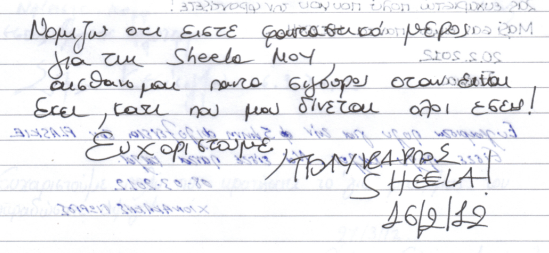 Νομιζω οτι ειστε φανταστικό μερος
για την Sheela μου,
αισθανομαι παντα σιγουρος οταν ειναι
εκει, κατι που μου δίνεται ολοι εσεις!
Ευχαριστουμε,
ΠΟΛΥΚΑΡΠΟΣ
SHEELA!
16/2/12